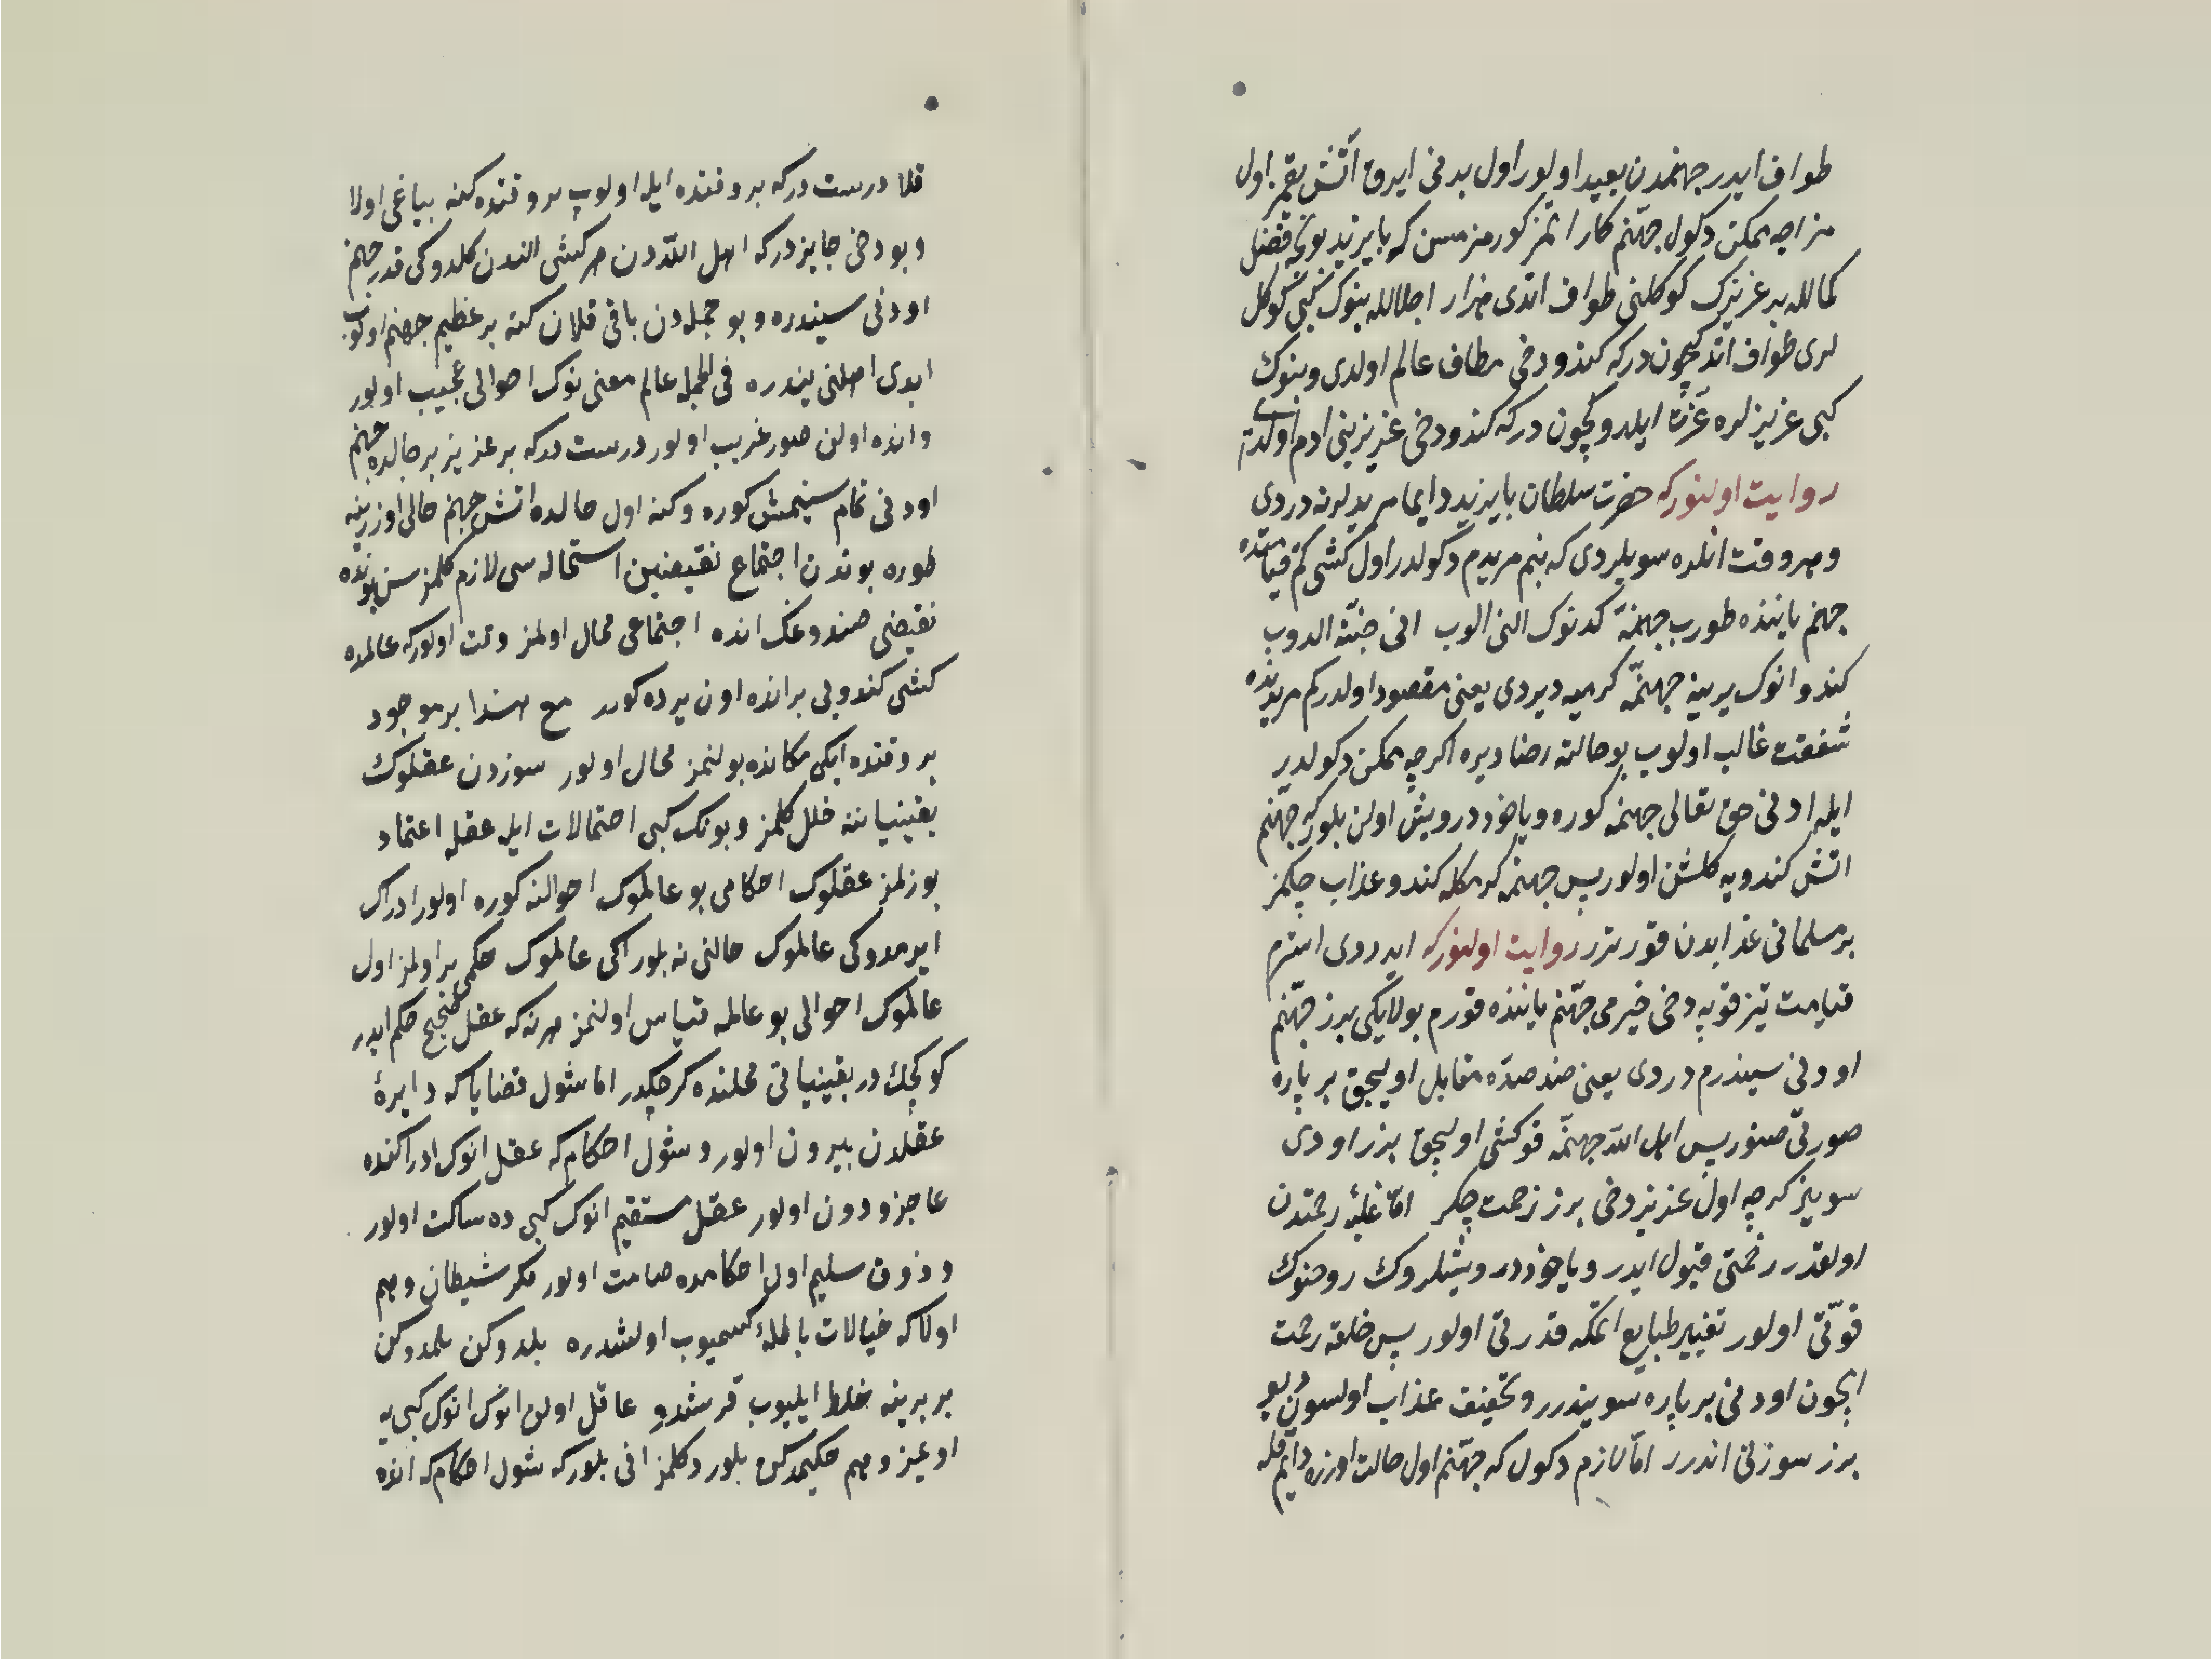 طواف ايدر جهنمدن بعيد اولور اول بدنى ايرق آتش يقمز اول
مزاجه ممكن دكول جهنم كار اتمز كورمزمسن كه بايزيد بونجه فضل
كمالله بر عزيزك كوكلنى طواف اتدى هزار اجلالله بنوك كبى كوكل
لرى طواف اتدكيچون دركه كندو دخى مطاف عالم اولدى و بنوك
كبى عزيزلره عزت ايلدوكچون دركه كندو دخى عزيز بنى ادم اولدى
روايت اولنور كه حضرت سلطان بايزيد دايما مريدلرنه دردى
و هر وقت انلره سويلردى كه بنم مريدم دكولدر اول كشى كم قيامتده
جهنم ياننده طورب جهنمه كدنوك النى الوب انى جنته الدوب
كندو انوك يرينه جهنمه كرميه ديردى يعنى مقصود اولدركم مريدنده
شفقت غالب اولوب بو حالته رضا ديره اكرچه ممكن دكولدر
ايله اودنى حق تعالى جهنمه كوره و ياخود درويش اولن بلور كه جهنم
اتش كندويه كلشن اولور پس جهنمه كرمكله كندو عذاب چكمز
بر مسلمانى عذابدن قورترر روايت اولنور كه ايدردى اشترم
قيامت تيز قوپه دخى خيرمى جهنم ياننده قورم بولايكى برز جهنم
اودنى سيندرم دردى يعنى ضد ضده مقابل اوليجق بر پاره
صورتى صنور پس اهل الله جهنمه قو كشى اوليجق برز اودى
سوينر كرچه اول عزيز دخى برز زحمت چكر اما غلبهٔ رحمتدن
اولقدر زحمتى قبول ايدر و ياخود درويشلروك روحنوك
قوتى اولور تغيير طبايع اتمكه قدرتى اولور پس خلقه رحمت
ايچون اودنى بر پاره سويندرر و تخفيف عذاب اولسون ديو
برز سوزنى اندرر اما لازم دكول كه جهنم اول حالت اوزره دايم قله
قلا درست دركه بر وقتده ايله اولوب بر وقتده كنه بياغى اولا
و بو دخى جايز دركه اهل الله دن هر كشى الندن كلدوكى قدر جهنم
اودنى سيندره و بو جمله دن باقى قلان كنه بر عظيم جهنم اولوب
ابدى اهلنى يندره فى الجمله عالم معنى نوك احوالى عجيب اولور
و انده اولن صور غريب اولور درست دركه بر عزيز بر حالده جهنم
اودنى تمام سينمش كوره و كنه اول حالده اتش جهنم حالى اوزرينه
طوره بوندن اجتماع نقيضين استحاله سى لازم كلمز سن بونده
نقيضى صندوغك انده اجتماعى محال اولمز وقت اولور كه عالمده
كشى كندويى بر انده اون يرده كورر مع هذا بر موجود
بر وقتده ايكى مكانده بولنمز محال اولور سوزدن عقلوك
يقينياتنه خلل كلمز و بونك كبى احتمالات ايله عقله اعتماد
بوزلمز عقلوك احكامى بو عالموك احوالنه كوره اولور ادراك
ايرمدوكى عالموك حالنى نه بلور اكى عالموك حكمى بر اولمز اول
عالموك احوالى بو عالمه قياس اولنمز هر نه كه عقل صحيح حكم ايدر
كرچك در يقينياتى محلنده كرچكدر اما شول قضايا كه دايرهٔ
عقلدن بيرون اولور و شول احكام كه عقل انوك ادراكنده
عاجز و دون اولور عقل مستقيم انوك كبى ده ساكت اولور
و ذوق سليم اول احكامده صامت اولور مكر شيطان وهم
اولا كه خيالات باطله كسميوب اولشدره بلدوكن بلمدوكن
بر برينه خلط ايليوب قرشدو عاقل اولن انوك انوك كبى يه
اوعيز وهم حكيمدكن بلور دكلمز انى بلور كه شول احكام كه انده